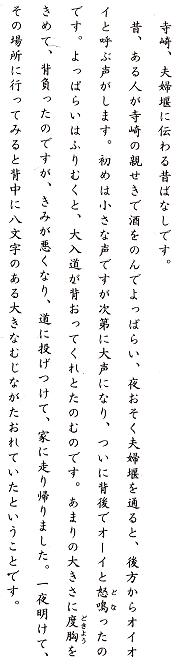 寺崎、夫婦堰に伝わる昔ばなしです。
昔、ある人が寺崎の親せきで酒をのんでよっぱらい、夜おそく夫婦堰を通ると、後方からオイオ
イと呼ぶ声がします。初めは小さな声ですが次第に大声になり、ついに背後でオーイと怒鳴ったの
です。よっぱらいはふりむくと、大入道が背おってくれとたのむのです。あまりの大きさに度胸を
きめて、背負ったのですが、きみが悪くなり、道に投げつけて、家に走り帰りました。一夜明けて、
その場所に行ってみると背中に八文字のある大きなむじながたおれていたということです。